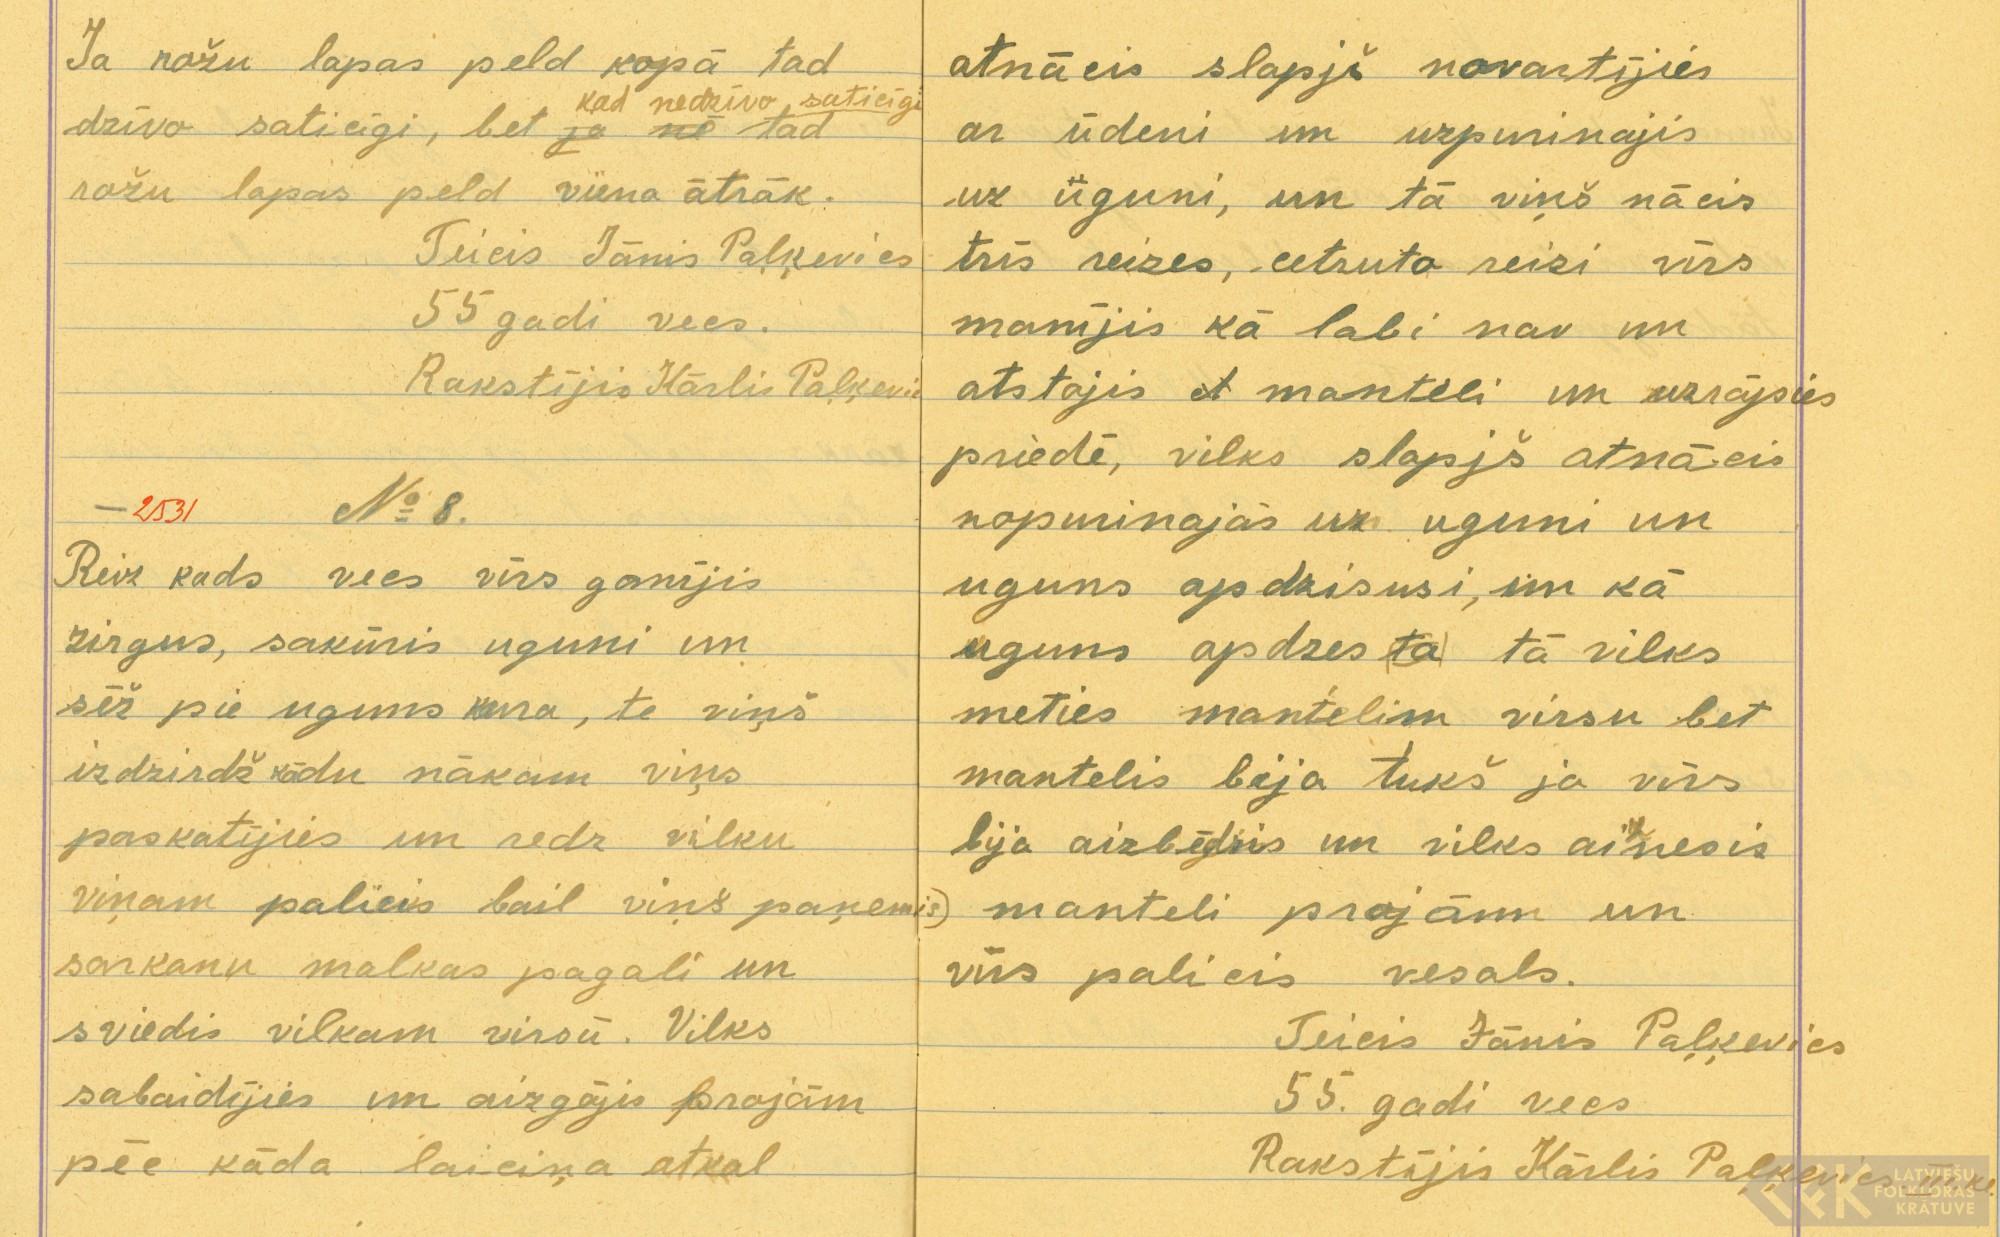 Ja rožu lapas peld kopā tad
kad nedzīvo saticīgi
dzīvo saticīgi, bet ja nē tad
rožu lapas peld viena ātrāk.
Teicis Jānis Paļķevics
55 gadi vecs.
Rakstījis Kārlis Paļķevic
— 2531 № 8.
Reiz kads vecs vīrs ganījis
zirgus, sakūris uguni un
sēž pie uguns kura, te viņš
izdzirdš kādu nākam viņs
paskatījies un redz vilku
viņam palicis bail viņš paņemis)
sarkanu malkas pagali un
sviedis vilkam virsū. Vilks
sabaidījies un aizgājis projām
pēc kāda laiciņa atkal
atnācis slapjš novartījies
ar ūdeni un uzpurinajis
uz ūguni, un tā viņš nācis
trīs reizes, cetruto reizi vīrs
manījis kā labi nav un
atstajis mantēli un uzrāpsies
priedē, vilks slapjš atnācis
nopurinajās uz uguni un
uguns apdzisusi, un kā
uguns apdzes (tā) tā vilks
meties mantelim virsu bet
mantelis bija tukš ja vīrs
bija aizbēdzis un vilks aiznesis
manteli projām un
vīrs palicis vesals.
Teicis Jānis Paļķevics
55. gadi vecs
Rakstījis Kārlis Paļķevics
LATVIEŠU
FOLKLORAS
KRĀTUVE